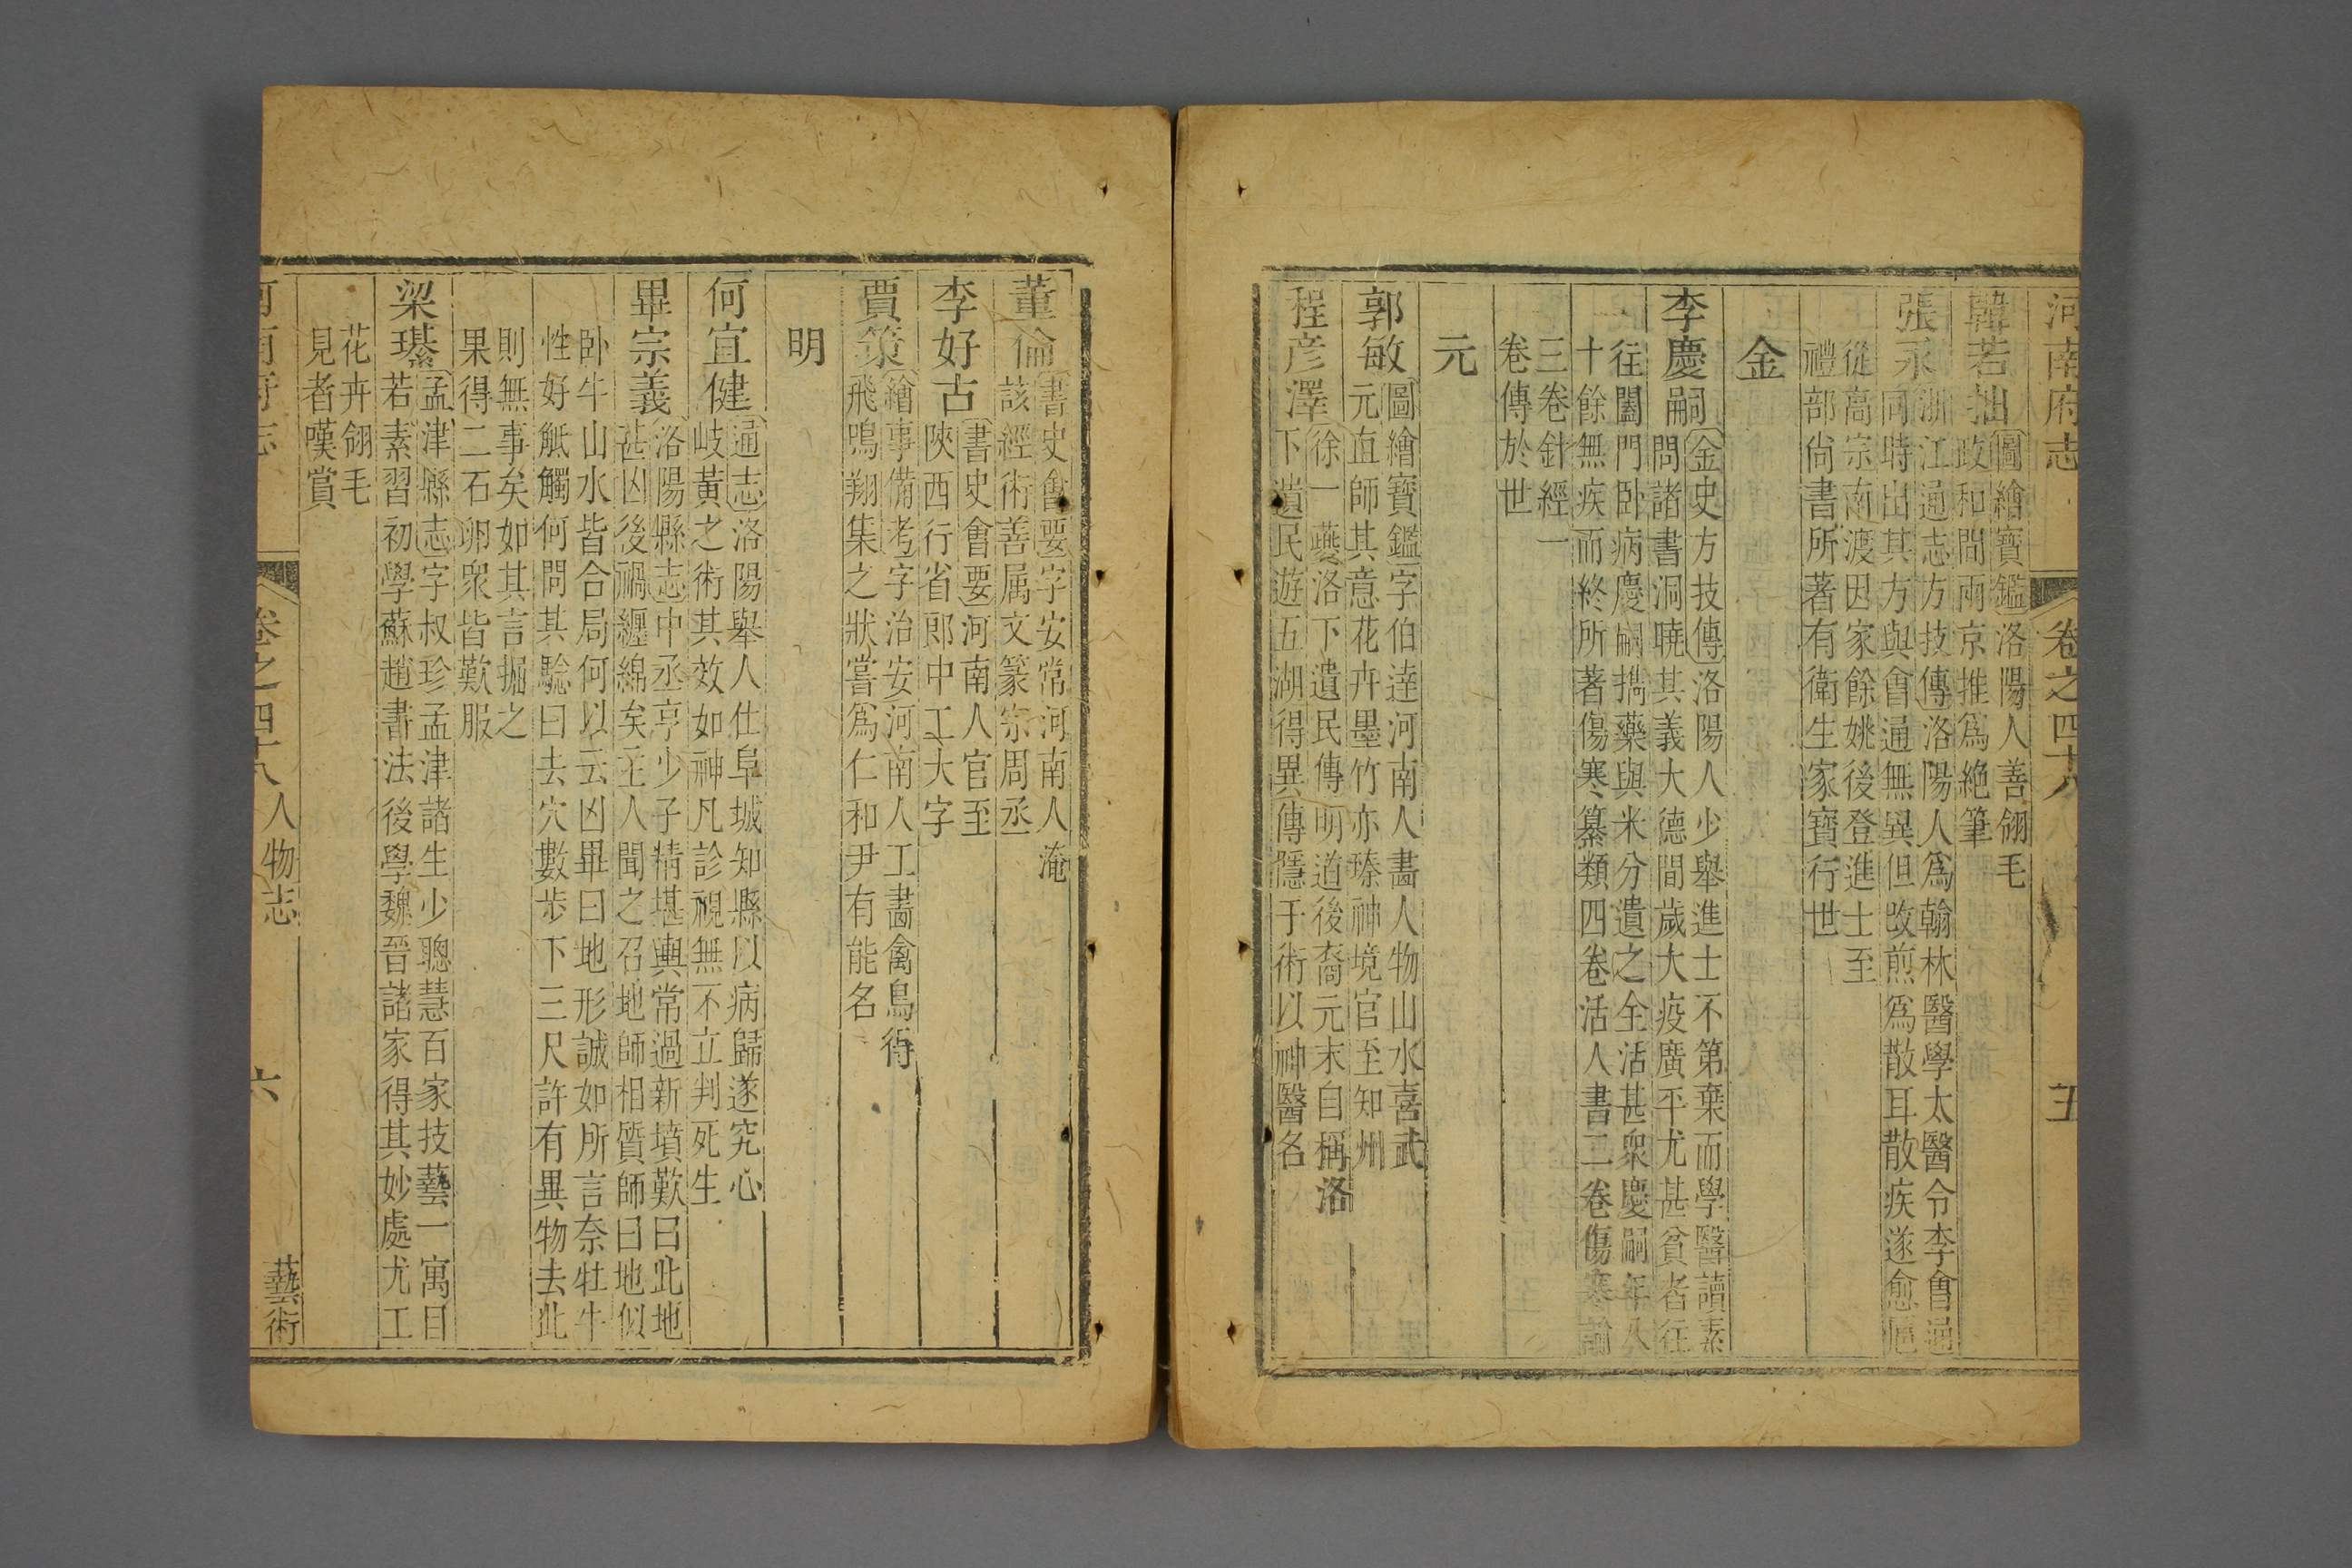 河南府志 卷之四十八 五
韓若拙圖繪寶鑑洛陽人善翎毛
政和間兩京推爲絶筆
張永浙江通志方技傳洛陽人爲翰林醫學太醫令李會通
同時出其方與會通無異但改煎爲散耳散疾遂愈扈
從高宗南渡因家餘姚後登進士至
禮部尙書所著有衛生家寶行世
金
李慶嗣金史方技傳洛陽人少舉進士不第棄而學醫讀素
問諸書洞曉其義大德間歲大疫廣平尤甚貧者往
往闔門卧病慶嗣擕藥與米分遺之全活甚衆慶嗣年八
十餘無疾而終所著傷寒纂類四卷活人書二卷傷寒論
三卷針經一
卷傳於世
元
郭敏圖繪寶鑑字伯逹河南人畵人物山水喜武
元直師其意花卉墨竹亦瑧神境官至知州
程彦澤徐一夔洛下遺民傳明道後裔元末自稱洛
下遺民遊五湖得異傳隱于術以神醫名
董倫書史會要字安常河南人淹
該經術善属文篆宗周丞
李好古書史會要河南人官至
陝西行省郎中工大字
賈策繪事備考字治安河南人工畵禽鳥得
飛鳴翔集之狀嘗爲仁和尹有能名
明
何宜健通志洛陽舉人仕阜城知縣以病歸遂究心
岐黃之術其效如神凡診視無不立判死生
畢宗義洛陽縣志中丞亨少子精堪輿常過新墳歎曰此地
甚凶後禍纒綿矣主人聞之召地師相質師曰地似
卧牛山水皆合局何以云凶畢曰地形誠如所言奈牡牛
性好觝觸何問其騐曰去穴數步下三尺許有異物去此
則無事矣如其言掘之
果得二石卵衆皆歎服
梁璂孟津縣志字叔珍孟津諸生少聰慧百家技藝一寓目
若素習初學蘇趙書法後學魏晉諸家得其妙處尤工
花卉翎毛
見者嘆賞
河南府志 卷之四十八 人物志 六 藝術